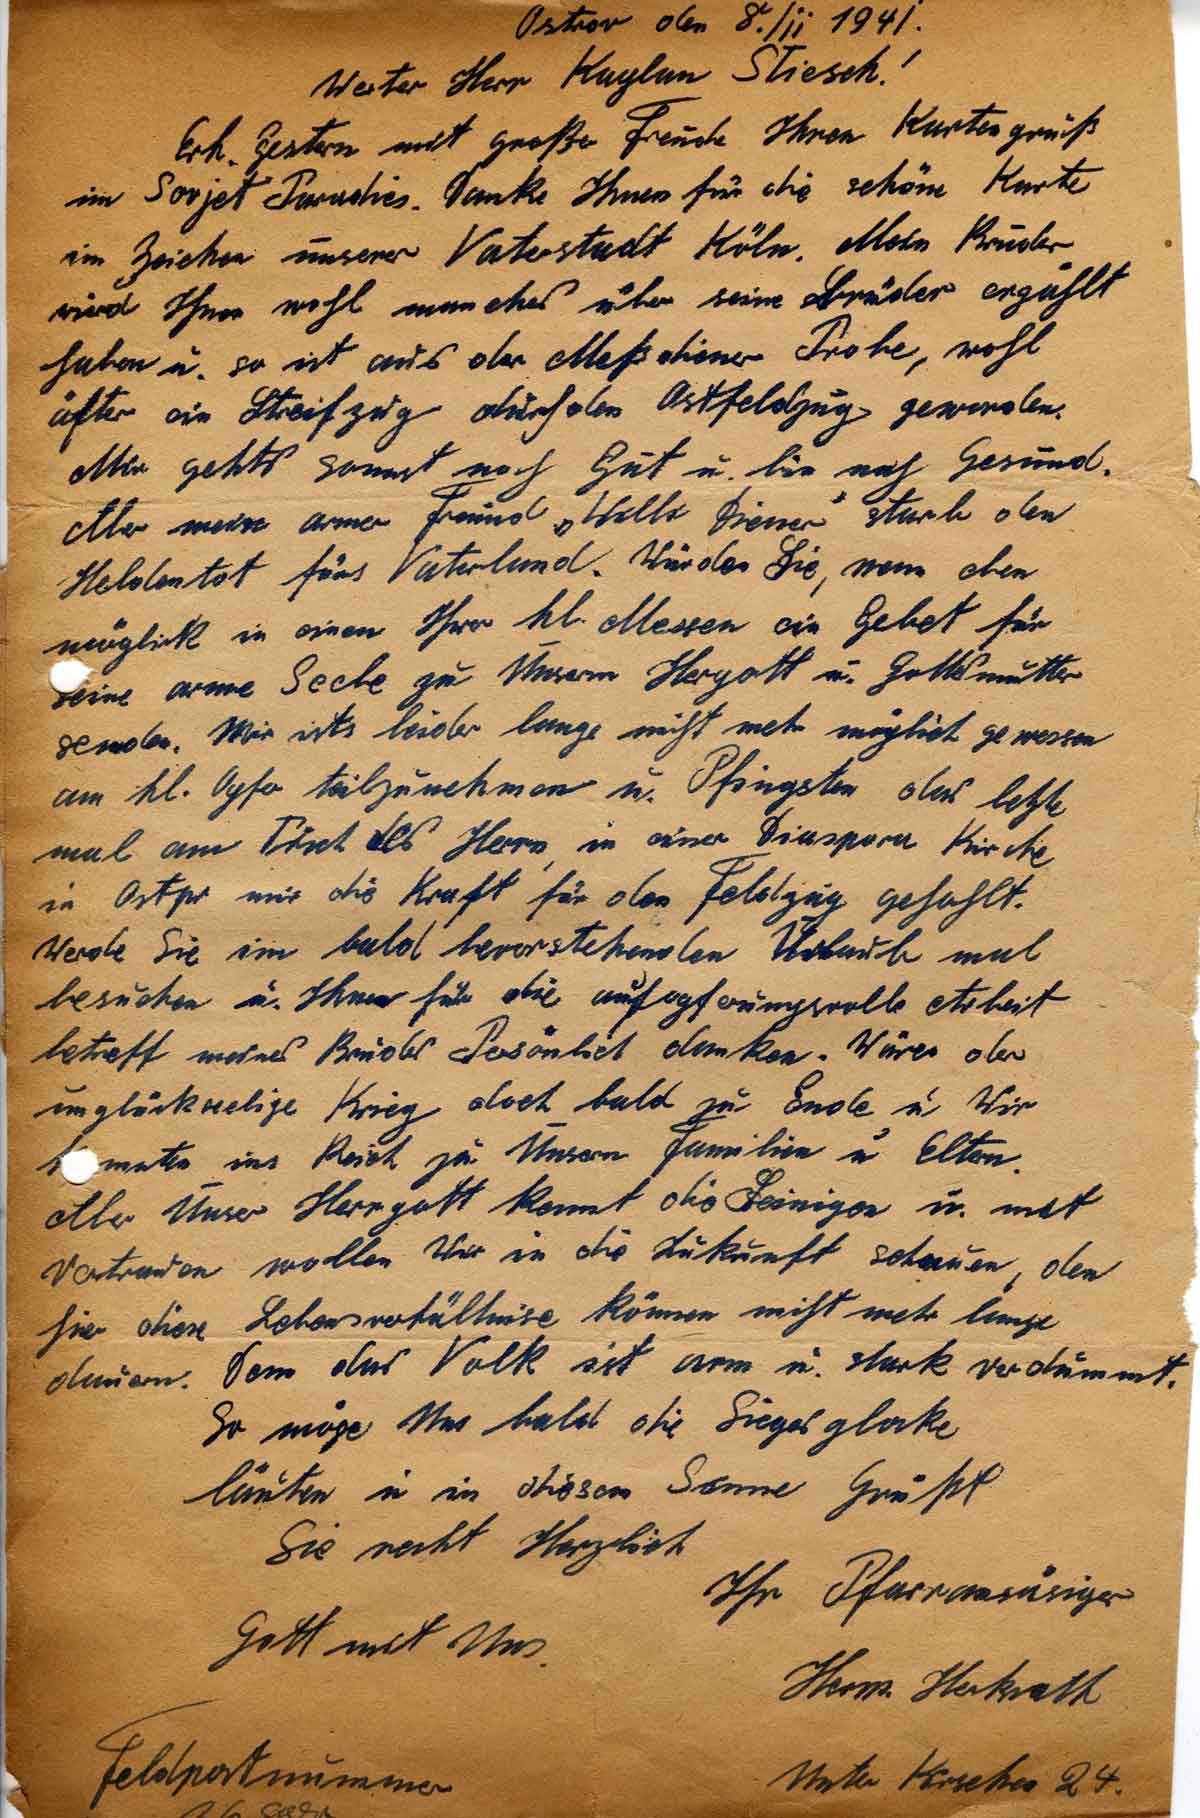 Ostrov den 8./11 1941.
Werter Herr Kaplan Stiesch!
Erh. Gestern mit großer Freude Ihren Kartengruß
im Sovjet Paradies. Danke Ihnen für die schöne Karte
im Zeichen unserer Vaterstadt Köln. Mein Bruder
wird Ihnen wohl manches über seine Brüder erzählt
haben u. so ist aus der Meßdiener Probe, wohl
öfter ein Streifzug durch den Ostfeldzug geworden.
Mir gehts sonnst noch Gut u. bin noch Gesund.
Aber mein armer Freund „Willi Diener” starb den
Heldentot fürs Vaterland. Würden Sie, wenn eben
möglich in einen Ihrer hl. Messen ein Gebet für
seine arme Seele zu Unserm Hergott u. Gottesmutter
senden. Mir ists leider lange nicht mehr möglich gewessen
am hl. Opfer teilzunehmen u. Pfingsten das letzte
mal am Tisch des Herrn, in einer Diaspora Kirche
in Ostpr mir die Kraft für den Feldzug gehohlt.
Werde Sie im bald bevorstehenden Urlaub mal
besuchen u. Ihnen für die aufopferungsvolle Arbeit
betreff meines Bruders Persönlich danken. Wäre der
unglückseelige Krieg doch bald zu Ende u Wir
ins Reich zu Unsern Familien u Eltern.
Aber Unser Herrgott kennt die Seinigen u. mit
Vertrauen wollen Wir in die Zukunft schauen, den
hier diese Lebensverhältnise können nicht mehr lange
dauern. Denn das Volk ist arm u. stark verdummt.
So möge Uns bald die Siegesglocke
läuten u in diesem Sinne Grüßt
Sie recht Herzlich
Ihr Pfarransäsiger
Gott mit Uns.
Herm. Herkrath
Feldpostnummer
Unter Kirschen 24.